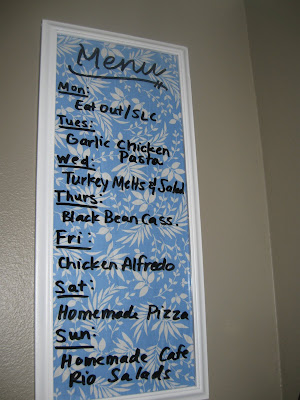 Menu
Mon:
Eat Out/SLC
Tues:
Garlic Chicken
Pasta
Wed:
Turkey Melts & Salad
Thurs:
Black Bean Cass.
Fri:
Chicken Alfredo
Sat:
Homemade Pizza
Sun:
Homemade Cafe
Rio Salads